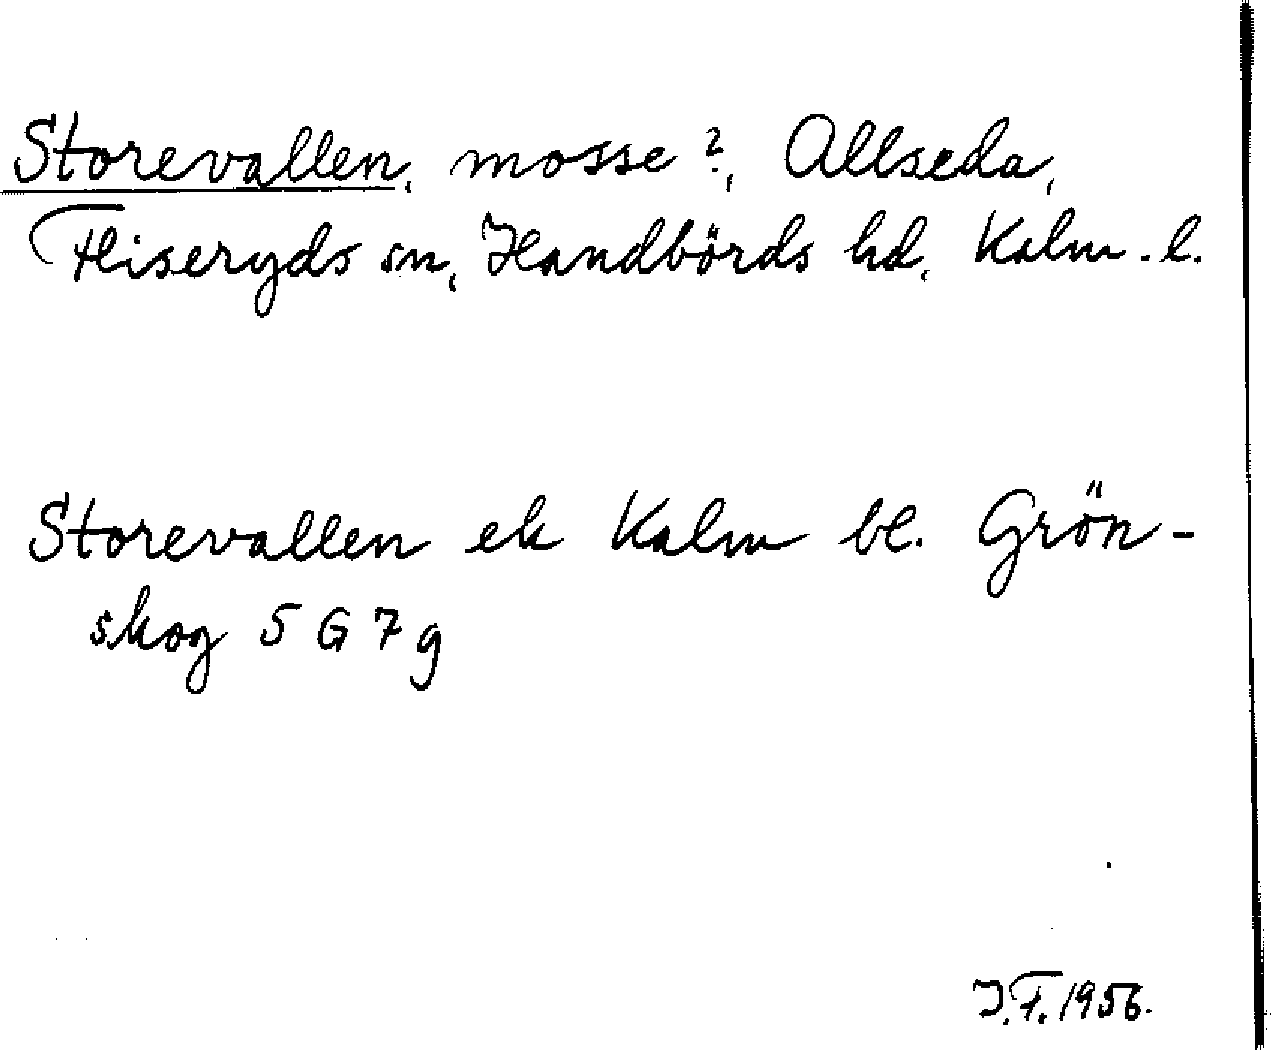 Storevallen, mosse?, Allseda,
Fliseryds sn, Handbörds hd, Kalm. l.
Storevallen ek Kalm bl. Grön-
skog 5 G 7 g
J.F. 1956.